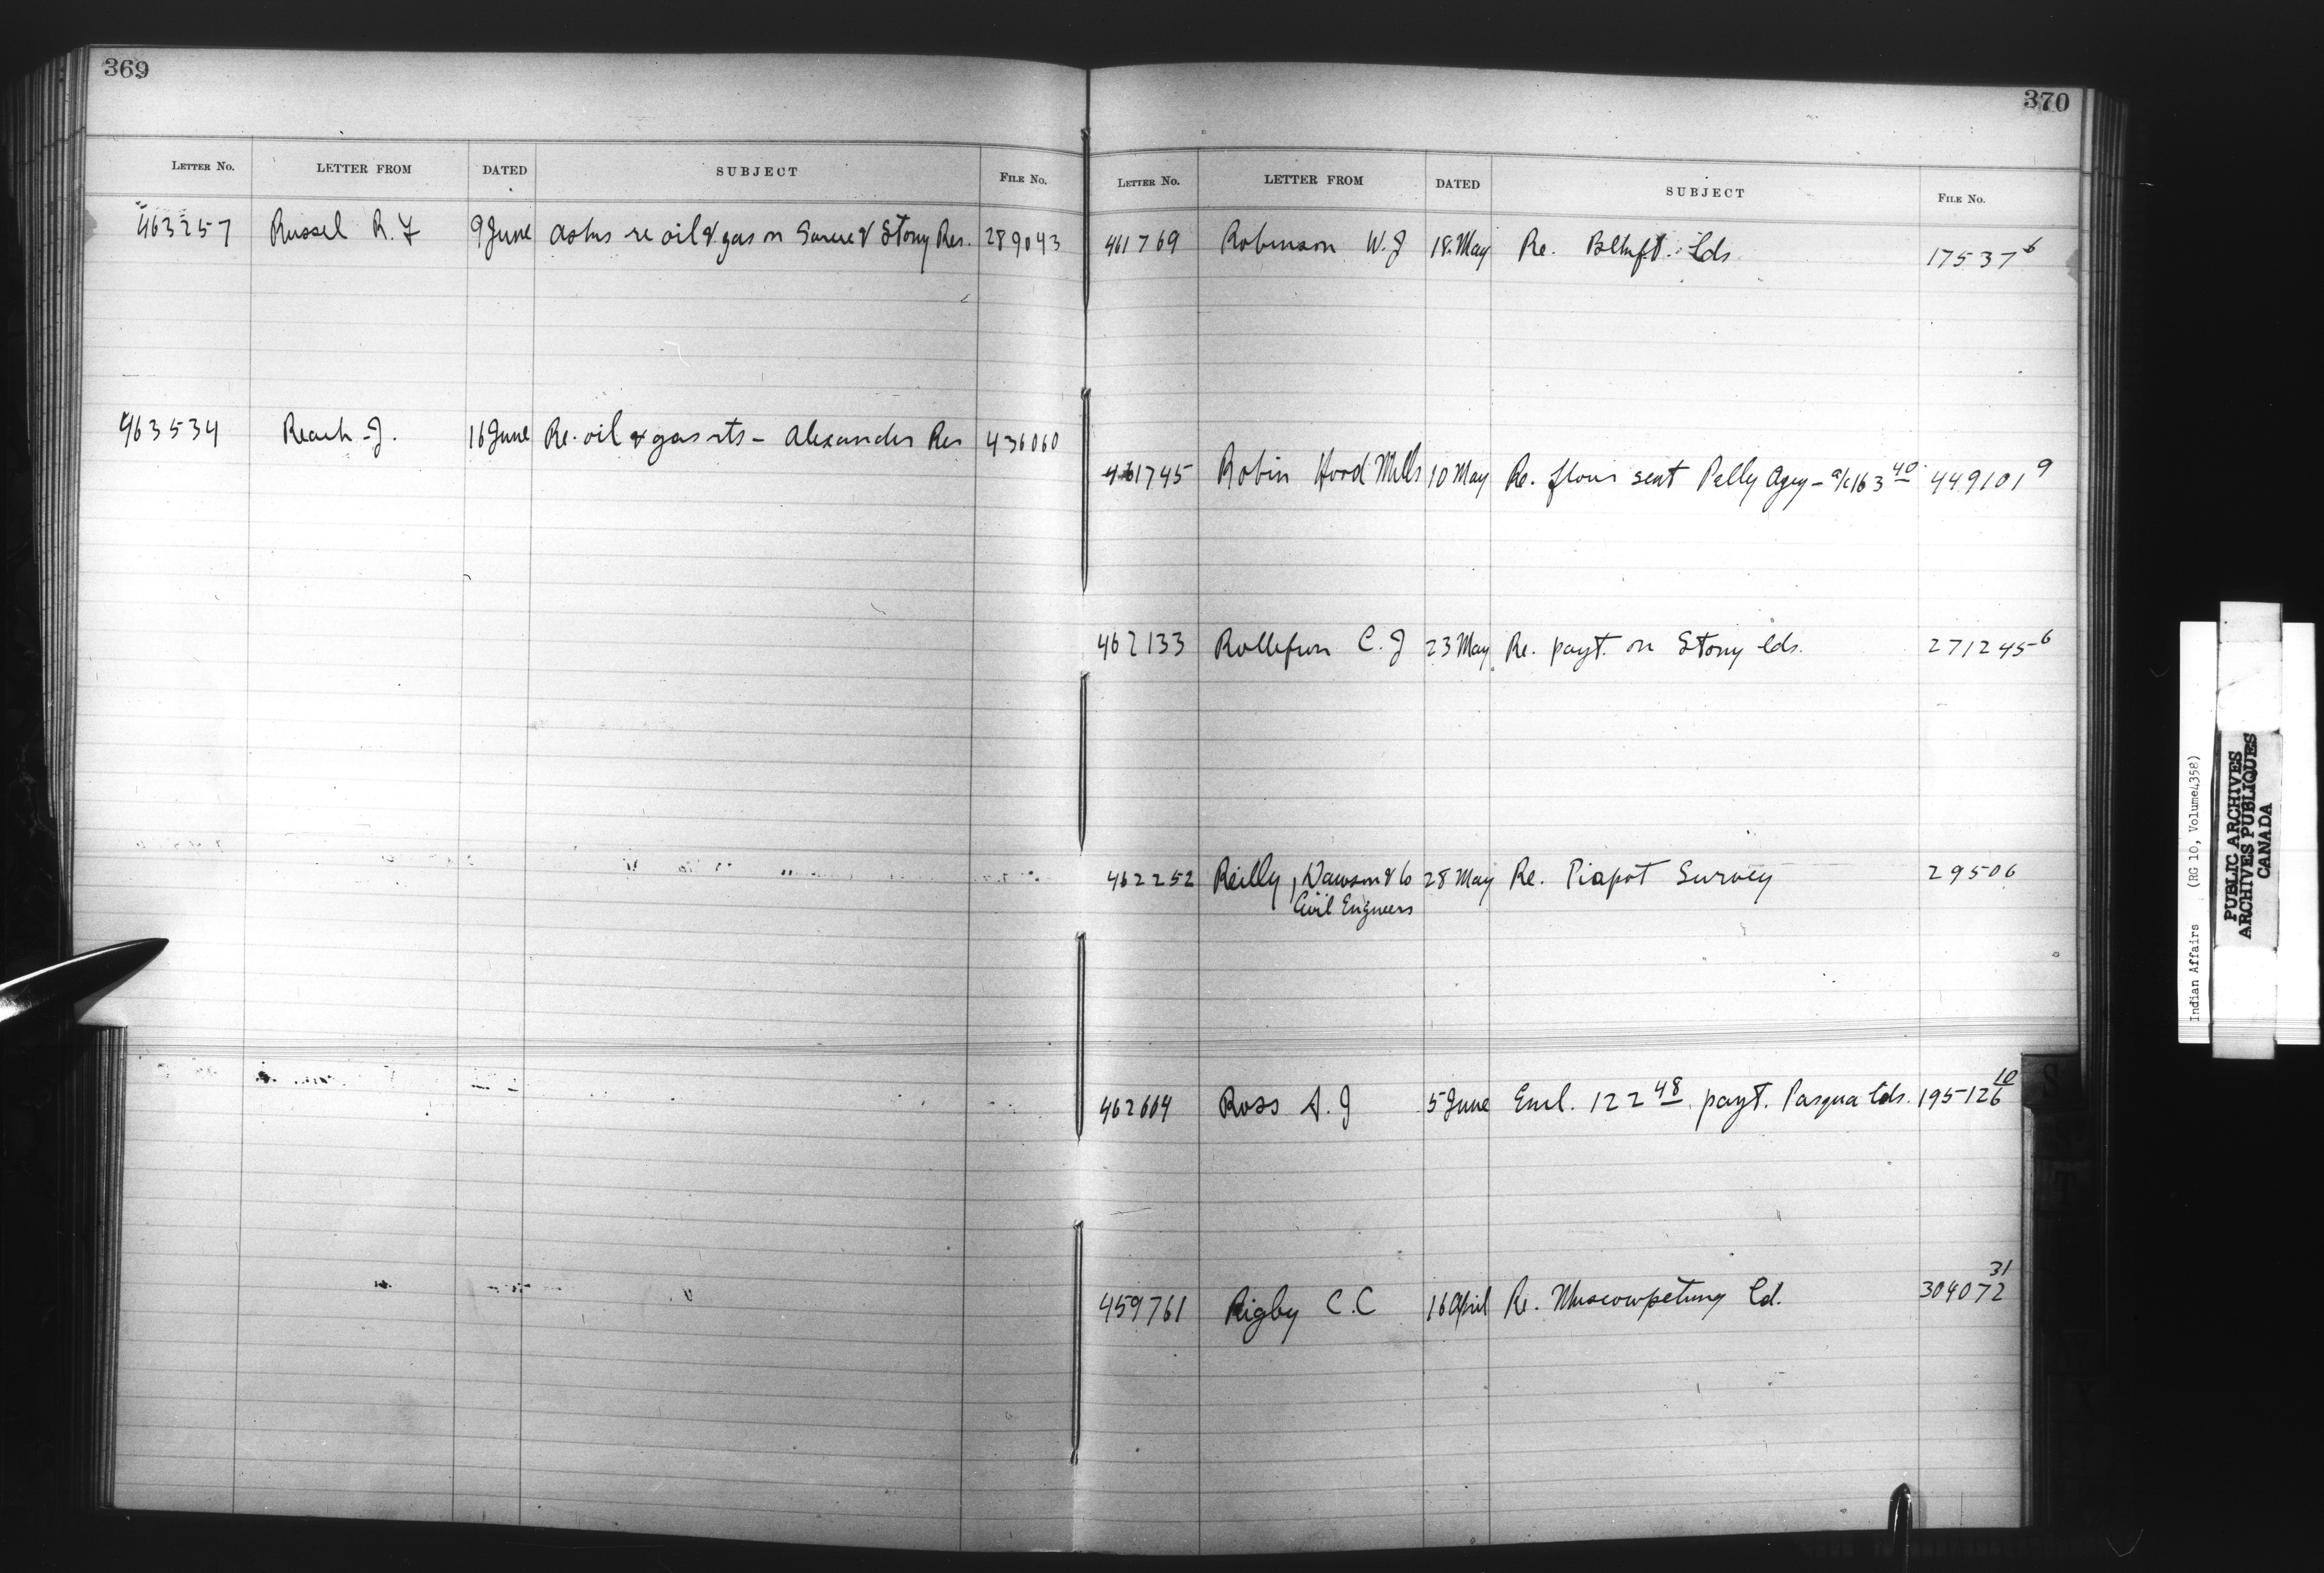 369
LETTER No. LETTER FROM DATED SUBJECT FILE No.
463257 Russel R. F 9 June asks re oil & gas on Sarcee & Stony Res. 289043
463534 Reach J. 16 June Re. oil & gas rts - Alexander Res 436060
370
LETTER No. LETTER FROM DATED SUBJECT FILE No.
461769 Robinson W. J 18 May Re. Blkft. Lds 17537 6
461745 Robin Hood Mills 10 May Re. flour sent Pelly Agcy - a/c 163 40 449101 9
462133 Rollefson C. J 23 May Re. payt. on Stony Lds. 271245 6
462252 Reilly, Dawson & Co 28 May Re. Piapot Survey 29506
Civil Engineers
462664 Ross A. J 5 June Encl. 122 48 payt. Pasqua Lds. 195126 10
459761 Rigby C. C 16 April Re. Muscowpetung Ld. 304072 31
Indian Affairs (RG 10, Volume 4358)
PUBLIC ARCHIVES
ARCHIVES PUBLIQUES
CANADA